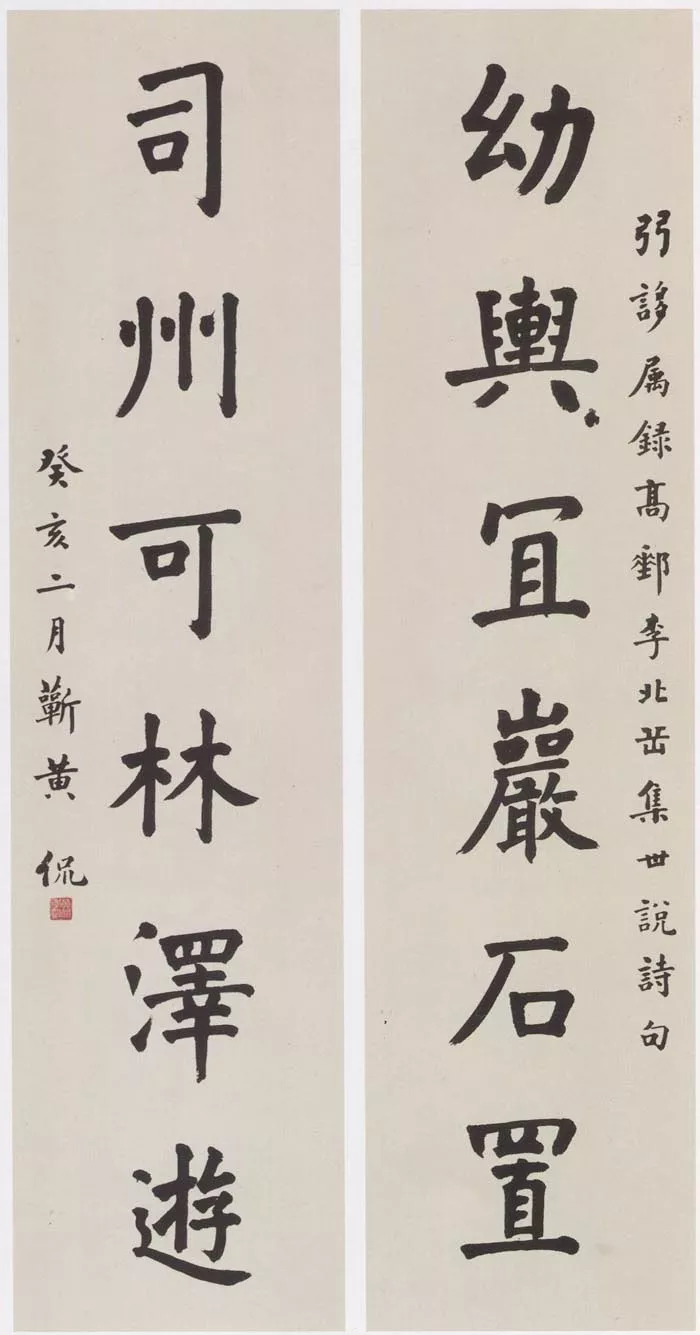 弜謻属録高郵李北岳集世說詩句
幼輿宜巖石置
司州可林澤遊
癸亥二月蘄黄侃